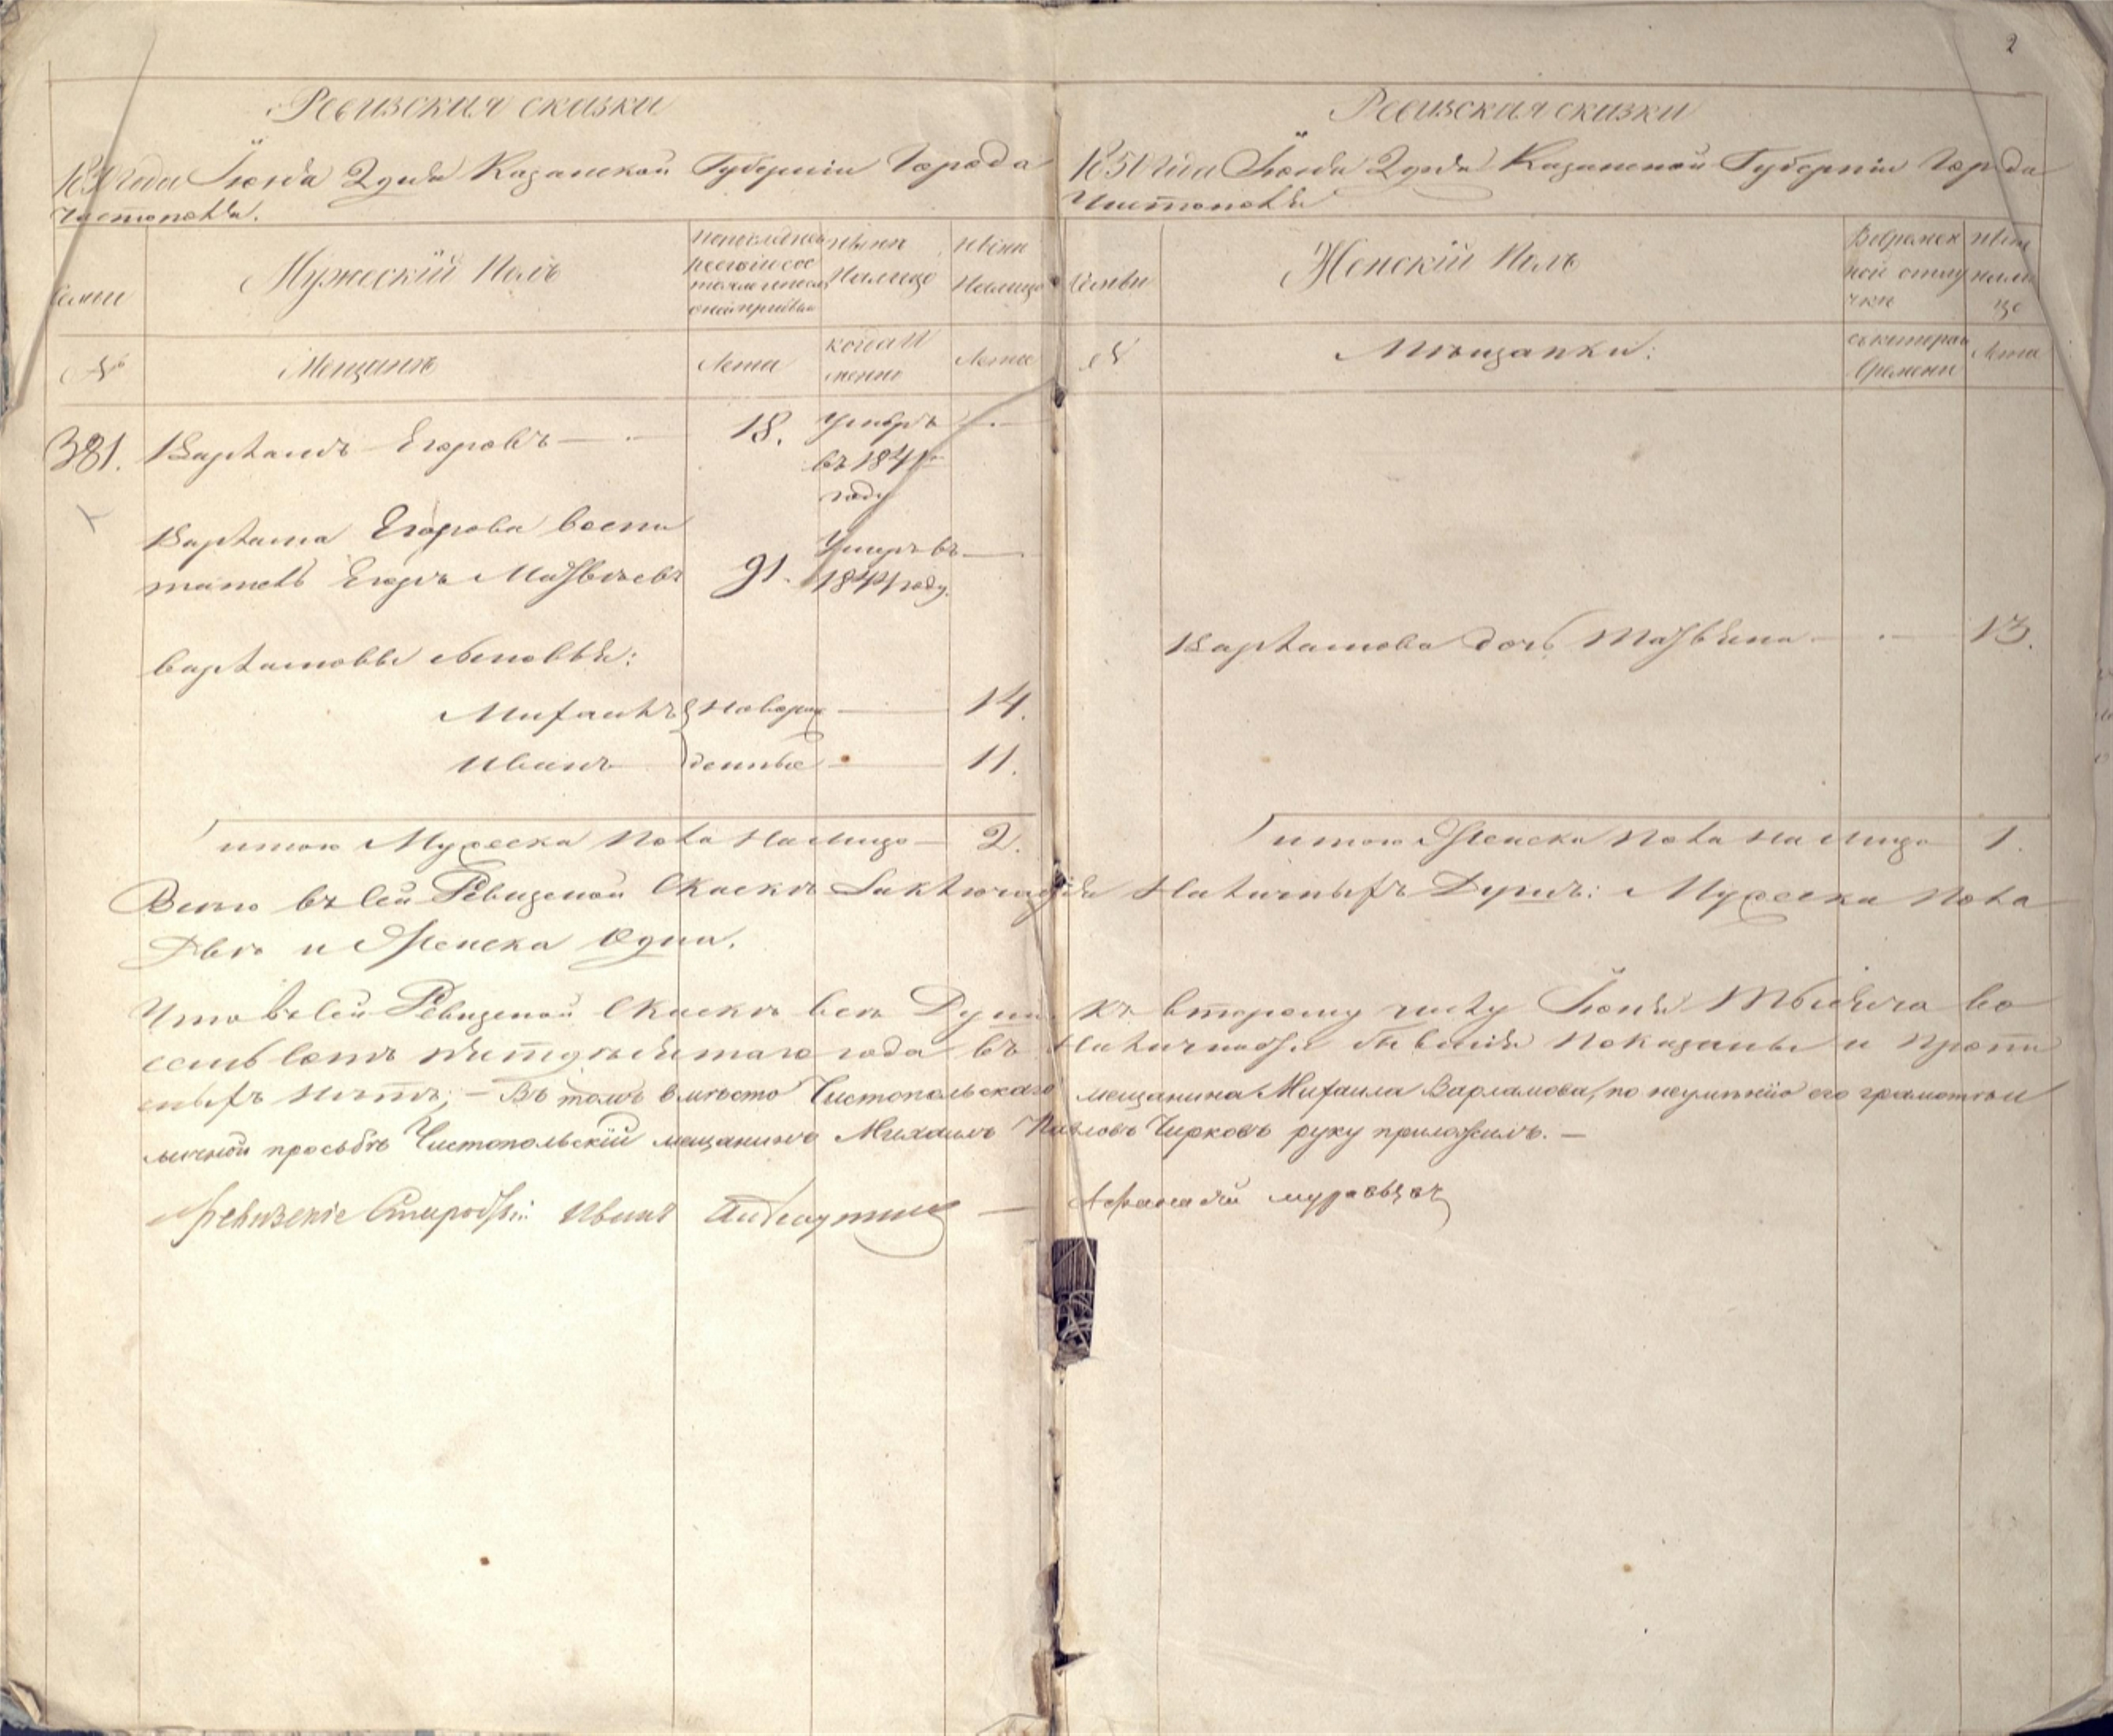 2
Ревизская сказки
1850 года Іюня 2 дня Казанской Губерніи Города
Чистополя.
Семьи
Мужескій Полъ
По последней
ревизіи состояло и после
оной прибыло
Изъ нихъ
На лицо
Ныне
На лицо
№
Мещанъ
Лета
когда И
менно
Лета
381. Варламъ Егоровъ — 18. Умеръ —
въ 1841м
году
Варлама Егорова воспи
татель Егоръ Матвѣевъ 91. Умеръ въ —
1844 году.
Варламовы сыновья:
Михаилъ Новорож — 14.
Иванъ денные — 11.
итого Мужеска пола на лицо — 2.
Ревизская сказки
1850 года Іюня 2 дня Казанской Губерніи Города
Чистополя
Семьи
Женскій Полъ
Во Времен
ной отлу
чки
Ныне
на ли
це
№
Мещанки:
съ котораго
Времени
Лета
Варламова дочь — 13.
итого Женска пола на лицо 1.
Всего въ сей Ревизской Сказкѣ Заключается Наличныхъ Душъ: Мужеска пола
Двѣ и Женска Одна.
Что въ сей Ревизской Сказкѣ всѣ Души къ второму числу Іюня Тысяча во
семьсотъ пятидесятаго года въ Наличности бывшія Показаны и Пропи
сныхъ нетъ; — Въ томъ вместо Чистопольскаго мещанина Михаила Варламова, по неумѣнію его грамотѣ и
личной просьбѣ Чистопольскій мещанинъ Михаилъ Павловъ Чирковъ руку приложилъ. —
Староста Иванъ —